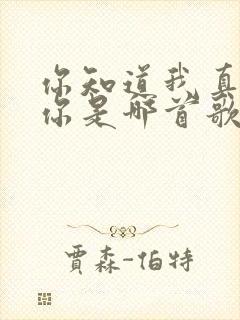 你知道我真
你是哪首歌
贾森-伯特